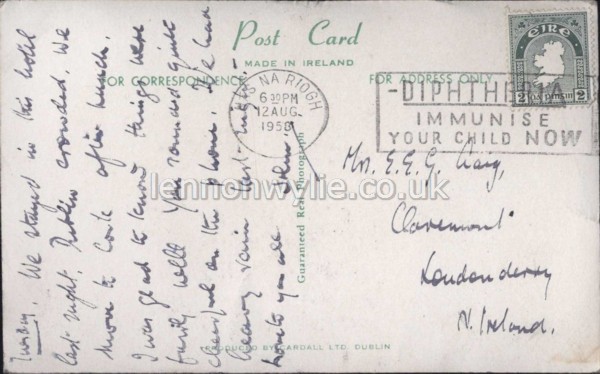 Post Card
MADE IN IRELAND
FOR CORRESPONDENCE
FOR ADDRESS ONLY
Tuesday. We stayed in this hotel
last night. Dublin crowded. We
move to Cork after lunch.
I was glad to know things were
fairly well. You sounded quite
cheerful on the phone. We had
heavy rain last night.
Love to you all John.
Guaranteed Real Photograph
NA RIOGH
6 30PM
12 AUG
1958
DIPHTHERIA
IMMUNISE
YOUR CHILD NOW
ÉIRE
2
Mrs. E. E. G. Craig,
Claremont
Londonderry
N. Ireland.
PRODUCED BY CARDALL LTD. DUBLIN
lennonwylie.co.uk